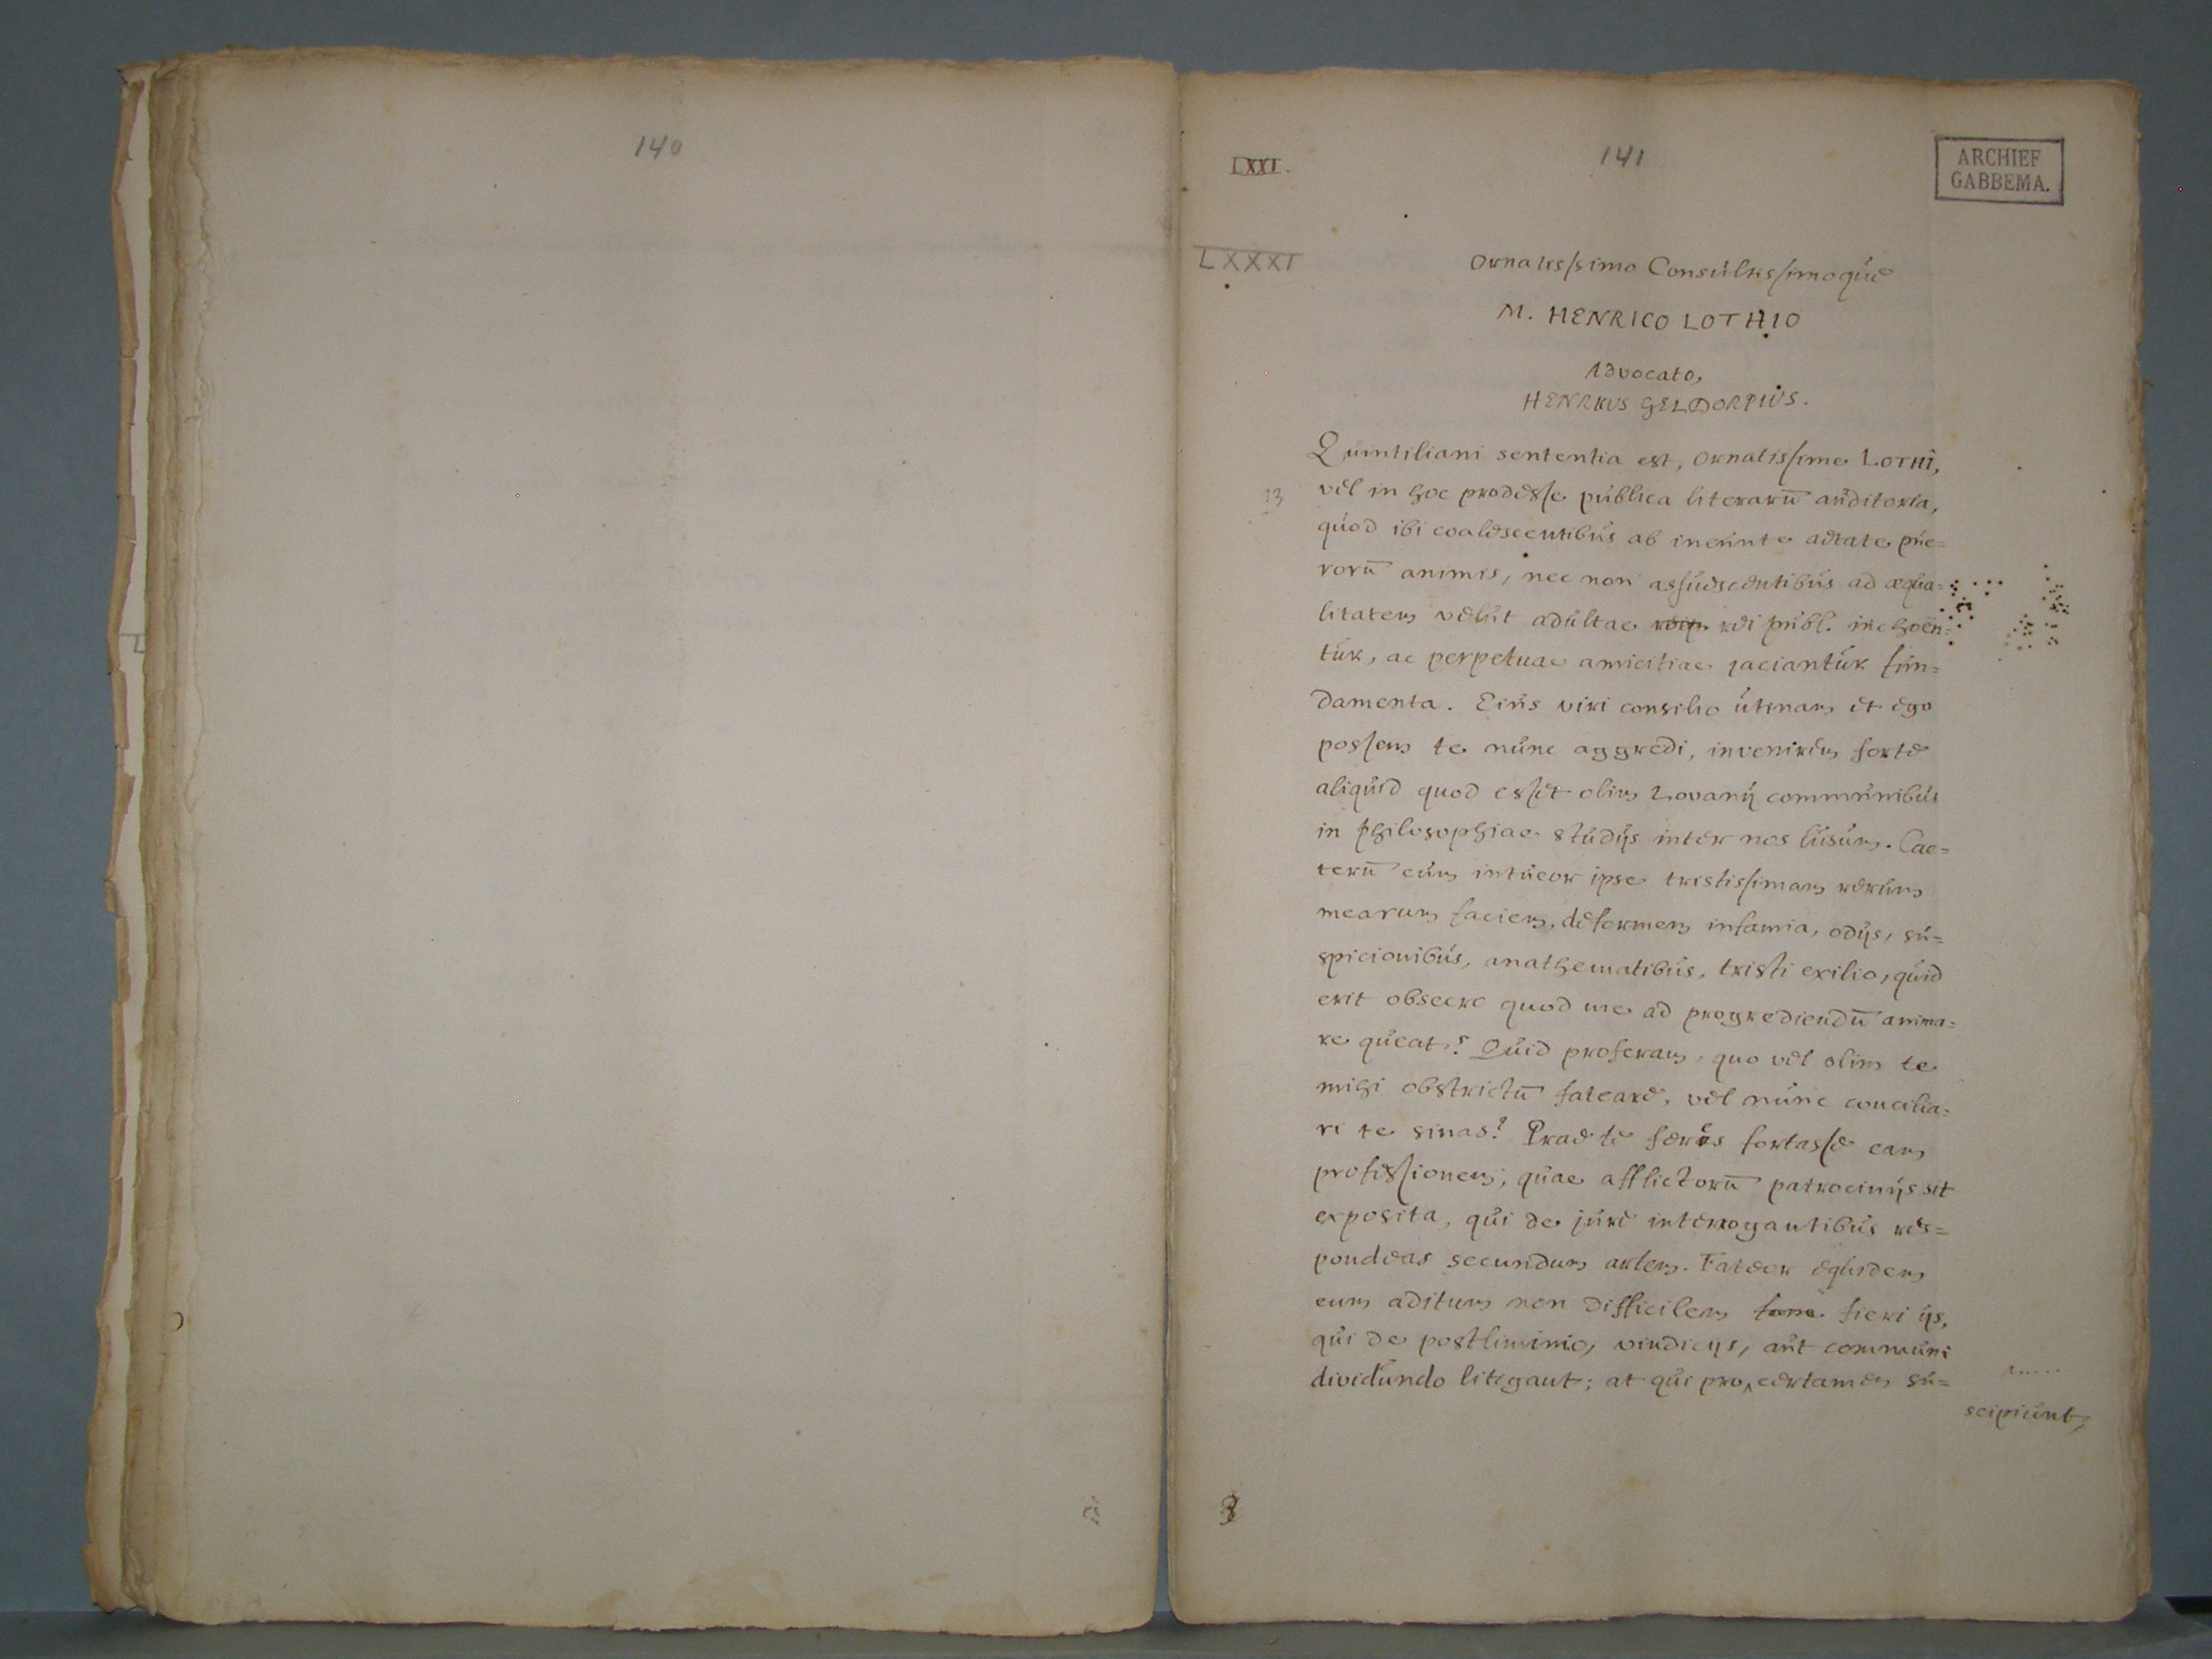 140
LXXI.
141
ARCHIEF
GABBEMA.
LXXXI
Ornatissimo Consultissimoque
M. HENRICO LOTHIO
Advocato,
HENRICUS GELDORPIUS.
Quintiliani sententia est, ornatissime LOTHI,
13
vel in hoc prodesse publica literarū auditoria,
quod ibi coalescentibus ab ineunte aetate pue=
rorū animis, nec non assuescentibus ad aequa=
litatem velut adultae reip. rei publ. inchoën=
tur, ac perpetuae amicitiae jaciantur fun=
damenta. Eius viri consilio utinam et ego
possem te nunc aggredi, invenirem forte
aliquid quod esset olim Lovanij communibus
in philosophiae studijs inter nos lusum. Cae=
terū cum intueor ipse tristissimam rerum
mearum faciem, deformem infamia, odijs, su=
spicionibus, anathematibus, tristi exilio, quid
erit obsecro quod me ad progrediendū anima=
re queat? Quid proferam, quo vel olim te
mihi obstrictū fateare, vel nunc concilia=
ri te sinas? Prae te feres fortasse eam
professionem, quae afflictorū patrocinijs sit
exposita, qui de jure interrogantibus res=
pondeas secundum artem. Fateor equidem
eum aditum non difficilem fieri ijs,
qui de postliminio, vindicijs, aut communi
dividundo litigant; at qui pro‸ certamen su=
.....
scipiunt,